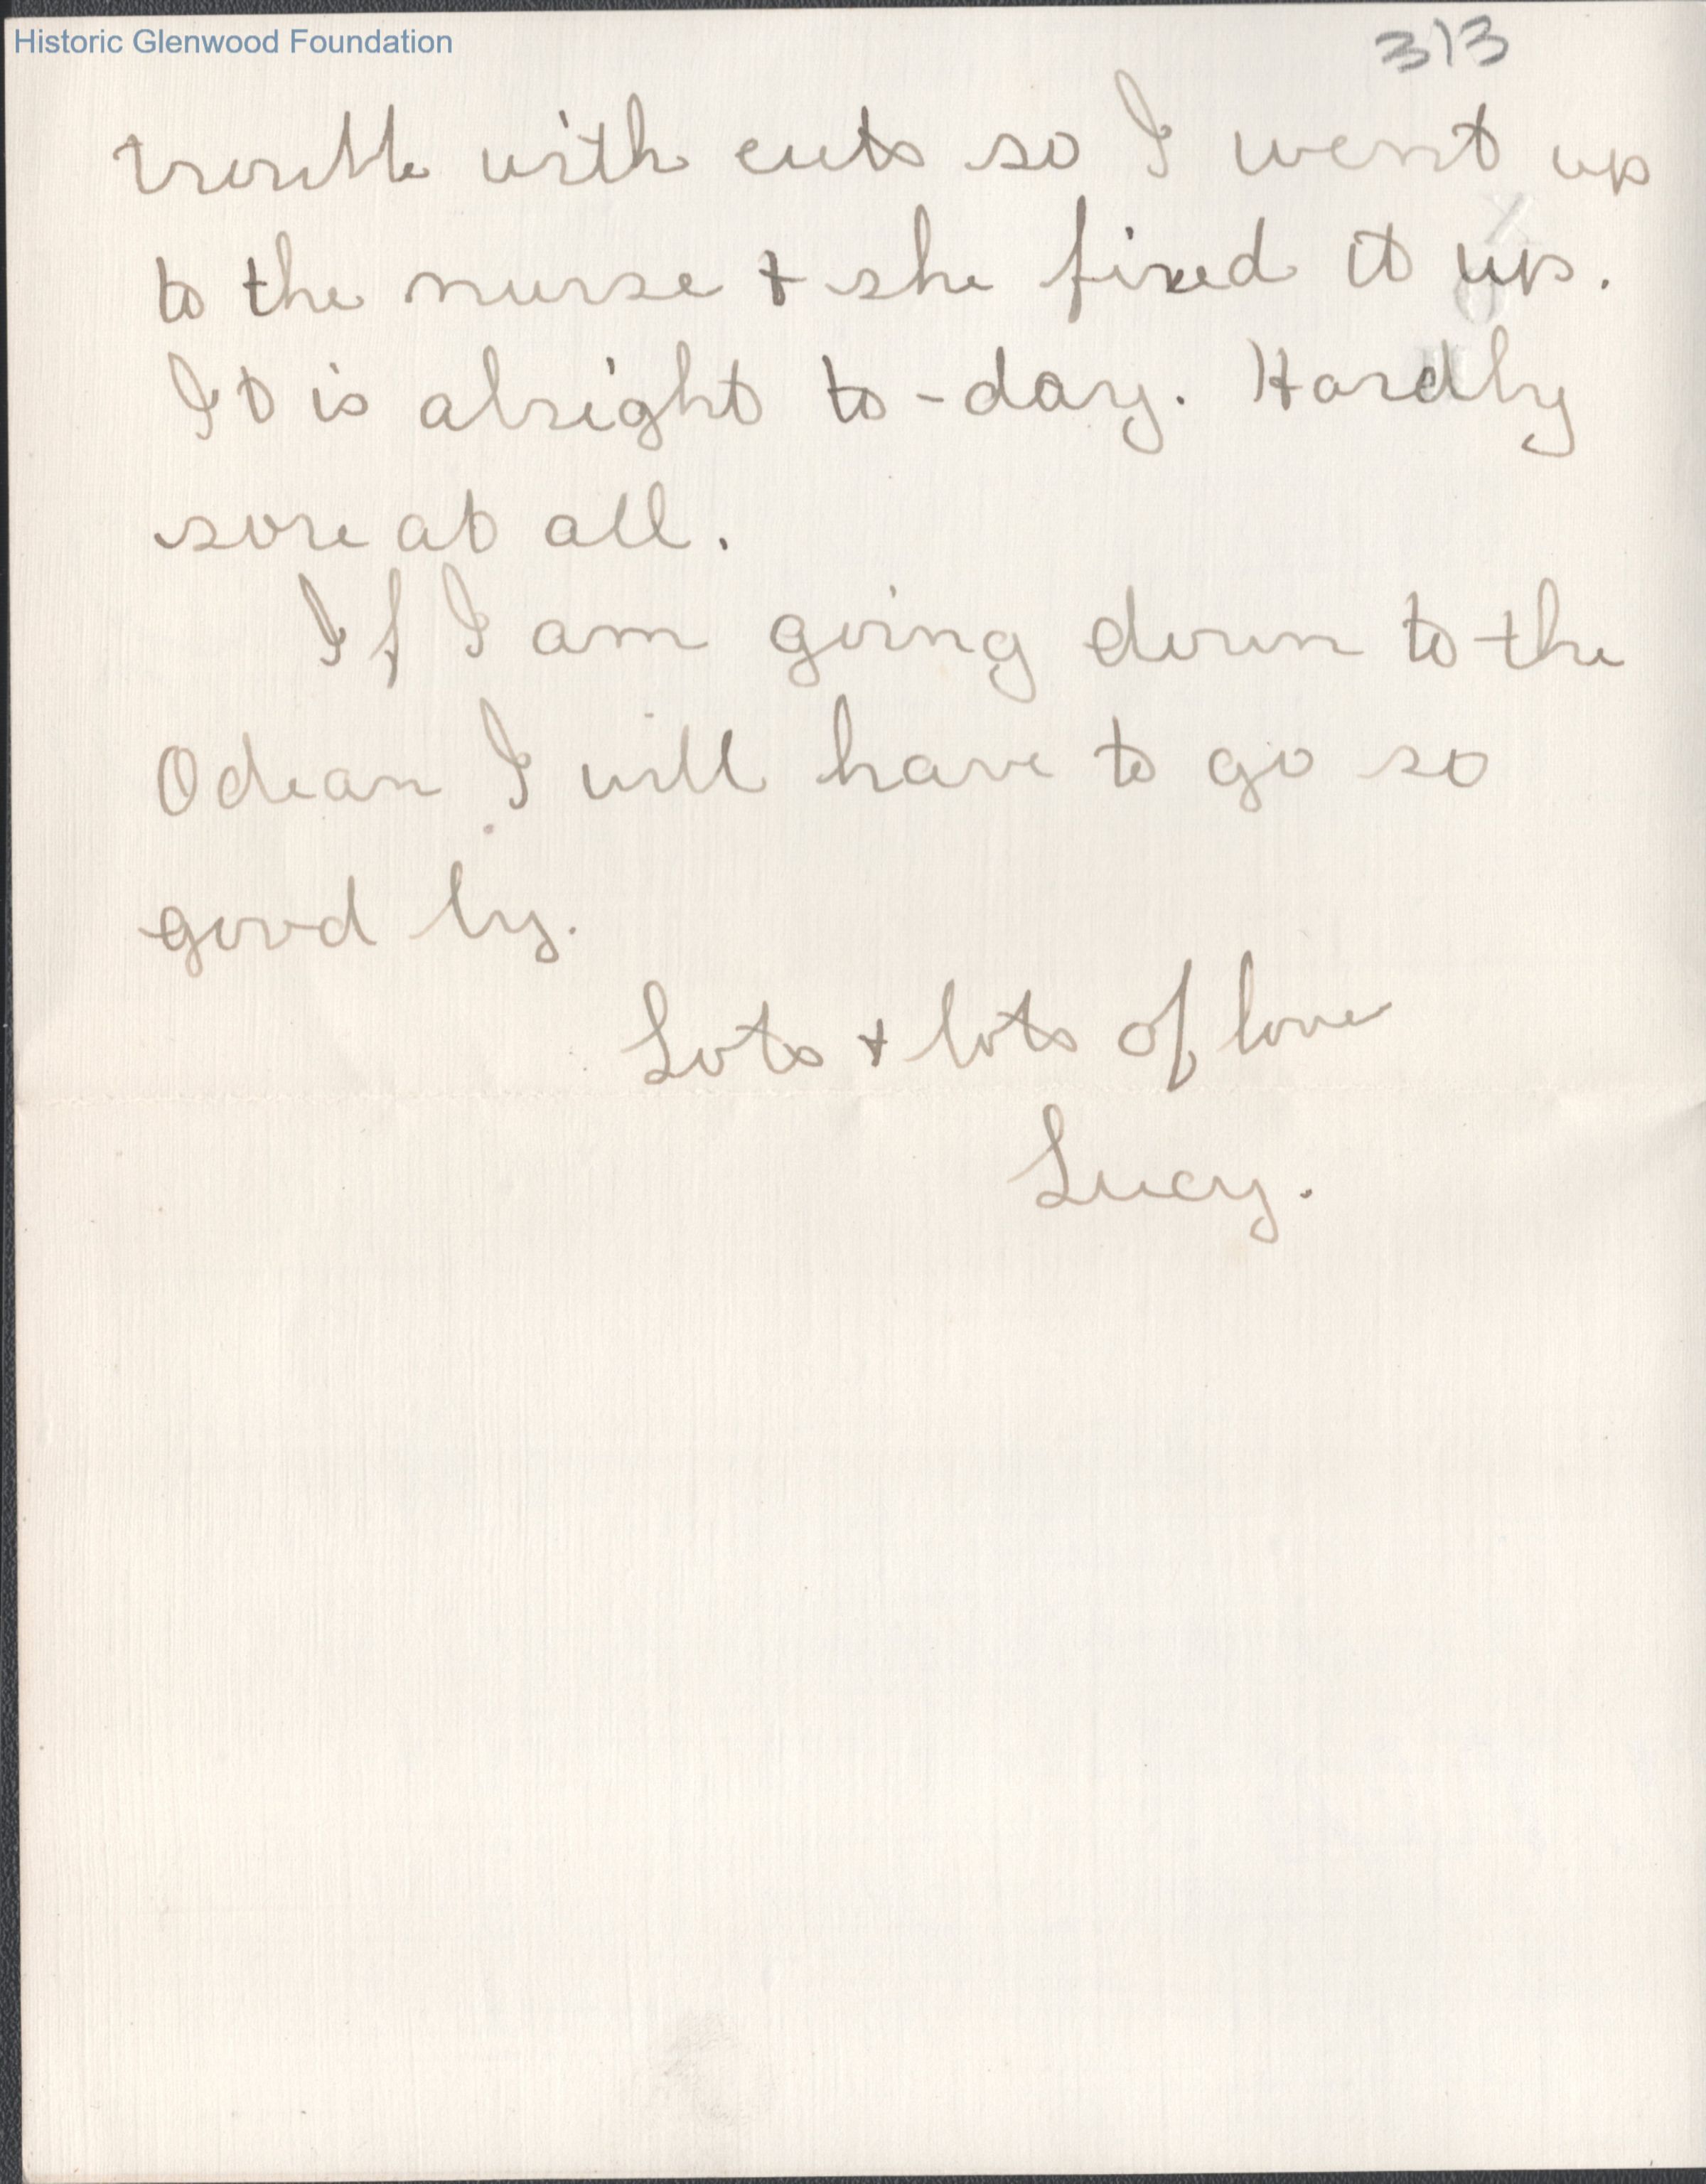 Historic Glenwood Foundation
313
trouble with cuts so I went up
to the nurse + she fixed it up.
It is alright to-day. Hardly
sore at all.
If I am going down to the
Odean I will have to go so
good by.
Lots + lots of love
Lucy.